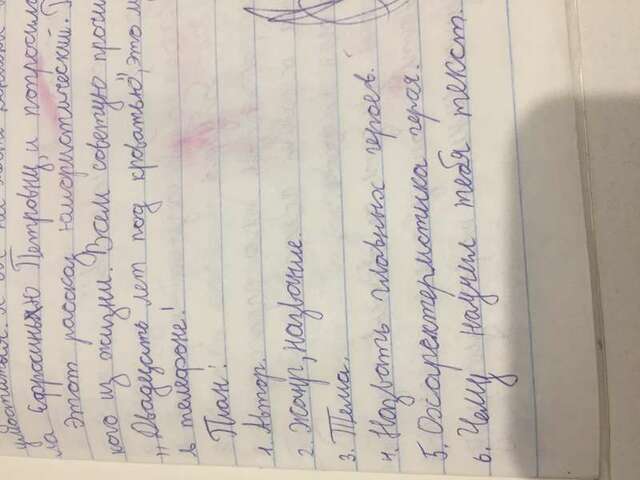 ла Ефросинью Петровну, и попросила
Этот рассказ юмористический.
кого из жизни. Всем советую прочи
„Двадецать лет под кроватью", это
в телефоне!
План:
1. Автор.
2. Жанр, название.
3. Тема.
4. Назвать главных героев.
5. Охаректермстика героя.
6. Чему научил тебя текст.